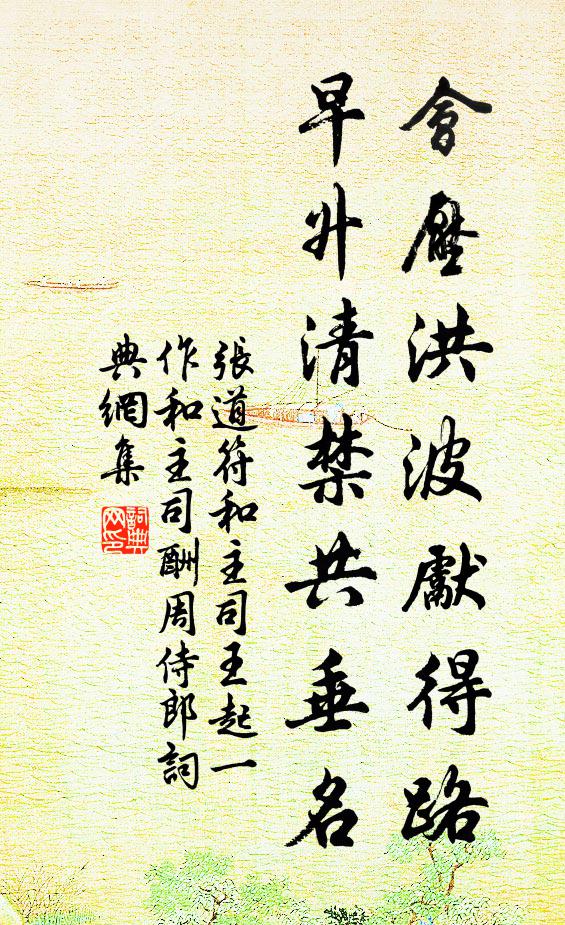 會壓洪波獻得路
早升清禁共垂名
張道符和主司王起一
作和主司酬周侍郎詞
典網集
詞典
网印